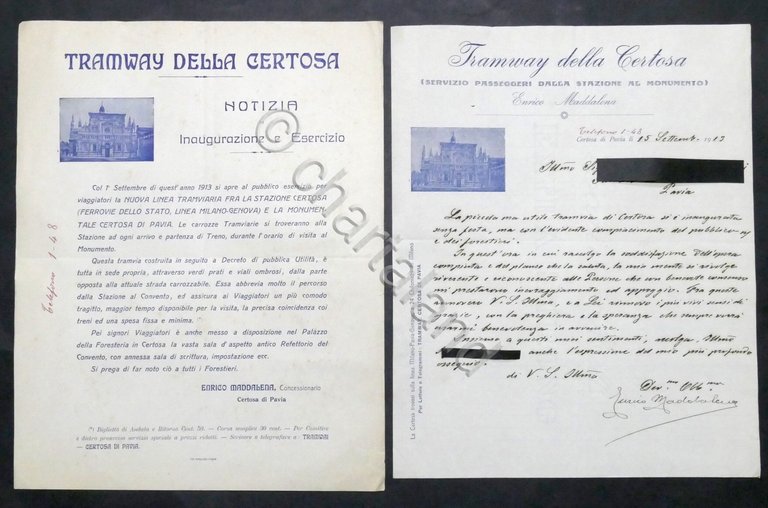 TRAMWAY DELLA CERTOSA
NOTIZIA
Inaugurazione e Esercizio
Col 1° Settembre di quest'anno 1913 si apre al pubblico esercizio per
viaggiatori la NUOVA LINEA TRAMVIARIA FRA LA STAZIONE CERTOSA
(FERROVIE DELLO STATO, LINEA MILANO-GENOVA) E LA MONUMEN-
TALE CERTOSA DI PAVIA. Le carrozze Tramviarie si troveranno alla
Stazione ad ogni arrivo e partenza di Treno, durante l'orario di visita al
Monumento.
Questa tramvia costruita in seguito a Decreto di pubblica Utilità, è
tutta in sede propria, attraverso verdi prati e viali ombrosi, dalla parte
opposta alla attuale strada carrozzabile. Essa abbrevia molto il percorso
dalla Stazione al Convento, ed assicura ai Viaggiatori un più comodo
tragitto, maggior tempo disponibile per la visita, la precisa coincidenza coi
treni ed una spesa fissa e minima.
Pei signori Viaggiatori è anche messo a disposizione nel Palazzo
della Foresteria in Certosa la vasta sala d'aspetto antico Refettorio del
Convento, con annessa sala di scrittura, impostazione ecc.
Si prega di far noto ciò a tutti i Forestieri.
ENRICO MADDALENA, Concessionario
Certosa di Pavia
(*) Biglietti di Andata e Ritorno Cent. 50. — Corsa semplice 30 cent. — Per Comitive
e dietro preavviso servizio speciale a prezzi ridotti. — Scrivere o telegrafare a: TRAMWAY
— CERTOSA DI PAVIA.
Telefono 1-48
Tramway della Certosa
(SERVIZIO PASSEGGERI DALLA STAZIONE AL MONUMENTO)
Enrico Maddalena
Telefono 1-48
Certosa di Pavia li 15 Settemb. 1913
Illmo
Pavia
La piccola ma utile tramvia di Certosa si è inaugurata
senza festa, ma con l'evidente compiacimento del pubblico
e dei forestieri.
In quest'ora in cui raccolgo la soddisfazione dell'opera
compiuta e del plauso che la saluta, la mia mente si rivolge
riverente e riconoscente alle Persone che con benevole consenso
mi prestarono incoraggiamento ed appoggio. Fra queste
annovero V. S. Illma, e a Lei rinnovo i più vivi sensi di
grazie, con la preghiera e la speranza che sempre vorrà
usarmi benevolenza in avvenire.
Insieme a questi miei sentimenti, accolga, Illmo
anche l'espressione del mio più profondo
ossequio.
di V. S. Illma
Dev.mo Obb.mo
Enrico Maddalena
Per Lettere e Telegrammi: TRAMWAY CERTOSA DI PAVIA
© chartaland